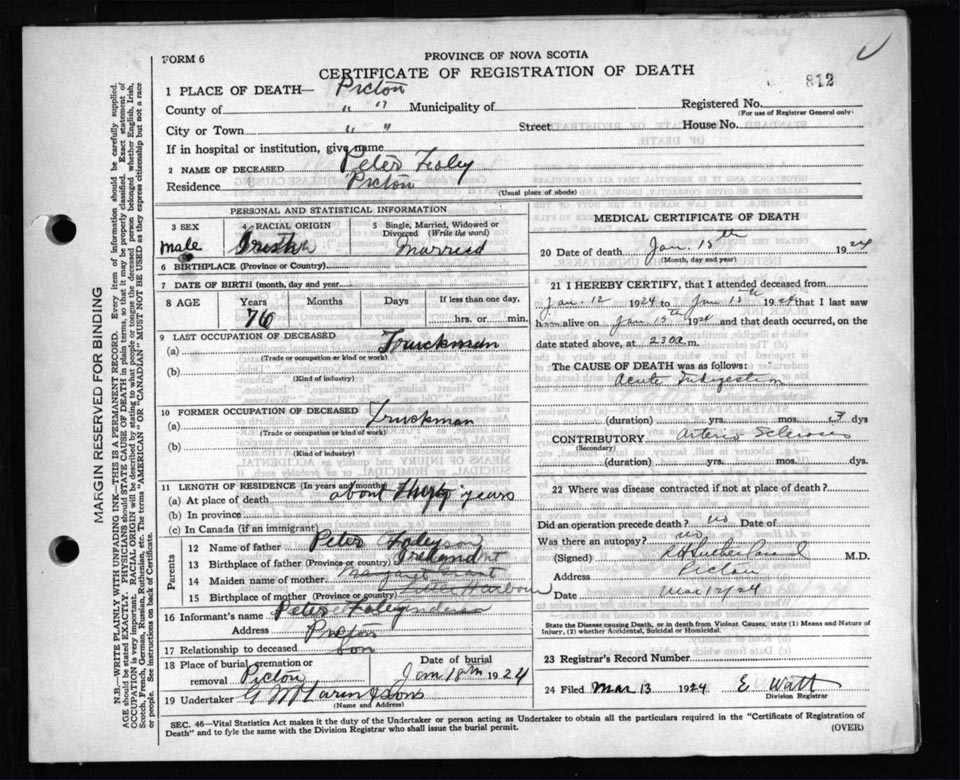 FORM 6
PROVINCE OF NOVA SCOTIA
CERTIFICATE OF REGISTRATION OF DEATH
812
1 PLACE OF DEATH— Pictou
County of " " Municipality of
Registered No.
(For use of Registrar General only)
City or Town " " Street House No.
If in hospital or institution, give name
2 NAME OF DECEASED Peter Foley
Residence Pictou
(Usual place of abode)
PERSONAL AND STATISTICAL INFORMATION
3 SEX male
RACIAL ORIGIN Irish
5 Single, Married, Widowed or Divorced (Write the word) Married
6 BIRTHPLACE (Province or Country)
7 DATE OF BIRTH (month, day and year)
8 AGE Years 76 Months Days If less than one day, hrs. or min.
9 LAST OCCUPATION OF DECEASED
(a) Truckman
(Trade or occupation or kind of work)
(b)
(Kind of industry)
10 FORMER OCCUPATION OF DECEASED
(a) Truckman
(Trade or occupation or kind of work)
(b)
(Kind of industry)
11 LENGTH OF RESIDENCE (In years and months)
(a) At place of death about years
(b) In province
(c) In Canada (if an immigrant)
Parents
12 Name of father Peter Foley
13 Birthplace of father (Province or country) Ireland
14 Maiden name of mother Margaret
15 Birthplace of mother (Province or country) Harbour
16 Informant's name Peter Foley
Address Pictou
17 Relationship to deceased Son
18 Place of burial, cremation or removal Pictou
Date of burial Jan 18th 1924
19 Undertaker G & Sons
(Name and Address)
MEDICAL CERTIFICATE OF DEATH
20 Date of death Jan. 15th 1924
(Month, day and year)
21 I HEREBY CERTIFY, that I attended deceased from
Jan. 12 1924 to Jan 15th 1924 that I last saw
him alive on Jan 15th 1924 and that death occurred, on the
date stated above, at 230 a m.
The CAUSE OF DEATH was as follows:
Acute Indigestion
(duration) yrs. mos. 3 dys
CONTRIBUTORY Arterio Sclerosis
(Secondary)
(duration) yrs. mos. dys.
22 Where was disease contracted if not at place of death?
Did an operation precede death? no Date of
Was there an autopsy? no
(Signed) Sutherland M.D.
Address Pictou
Date Mar 12/24
State the Disease causing Death, or in death from Violent Causes, state (1) Means and Nature of
Injury, (2) whether Accidental, Suicidal or Homicidal.
23 Registrar's Record Number
24 Filed Mar 13 1924 E Watt
Division Registrar
SEC. 46—Vital Statistics Act makes it the duty of the Undertaker or person acting as Undertaker to obtain all the particulars required in the "Certificate of Registration of
Death" and to fyle the same with the Division Registrar who shall issue the burial permit.
(OVER)
MARGIN RESERVED FOR BINDING
N.B.—WRITE PLAINLY WITH UNFADING INK—THIS IS A PERMANENT RECORD. Every item of information should be carefully supplied.
AGE should be stated EXACTLY. PHYSICIANS should STATE CAUSE OF DEATH in plain terms, so that it may be properly classified. Exact statement of
OCCUPATION is very important. RACIAL ORIGIN will be described by stating to what people or tongue the deceased person belonged whether English, Irish,
Scotch, French, German, Russian, Ruthenian, etc. The terms "AMERICAN" or "CANADIAN" MUST NOT BE USED as they express citizenship but not a race
or people. See instructions on back of Certificate.